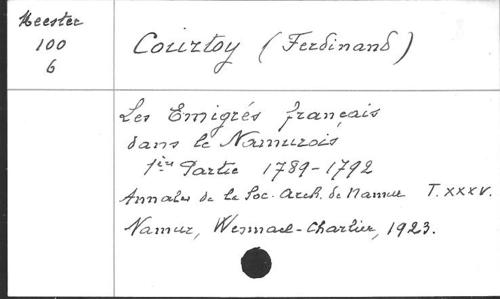 Meester
100
6
Courtoy (Ferdinand)
Les Emigrés français
dans le Namurois
1ère Partie 1789-1792
Annales de la Soc. Arch. de Namur T. XXXV.
Namur, Wesmael-Charlier, 1923.